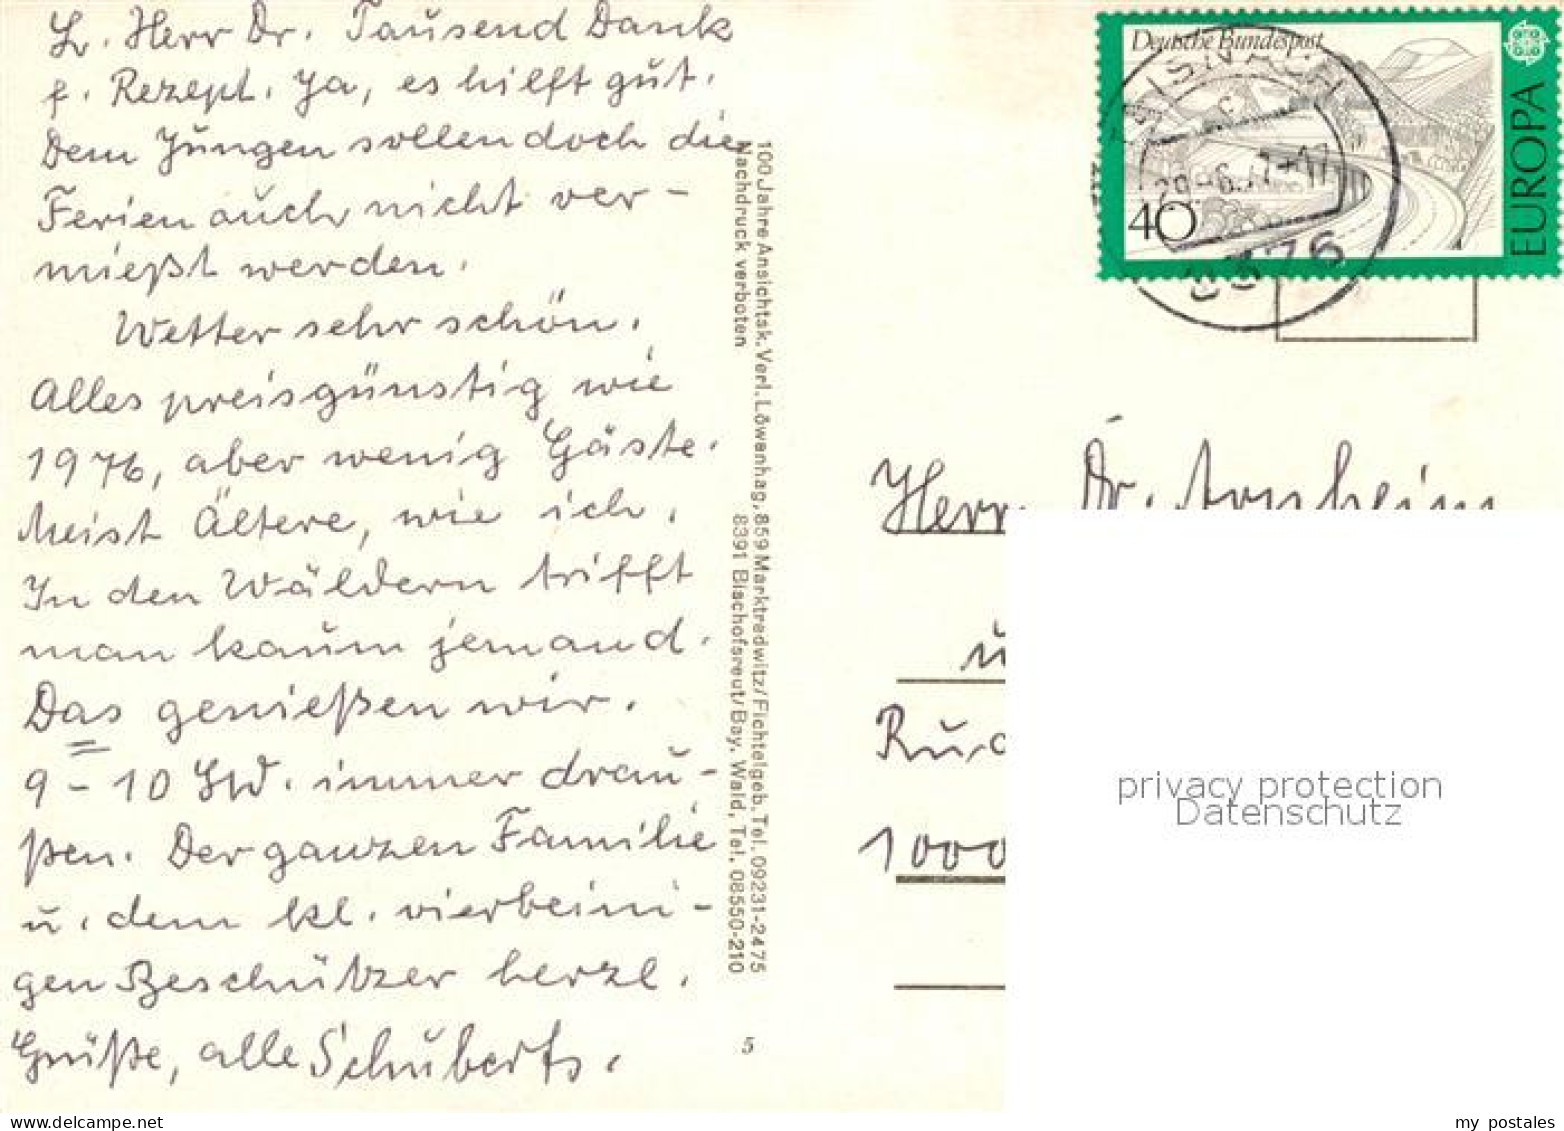 L. Herr Dr. Tausend Dank
f. Rezept. Ja, es hilft gut.
Dem Jungen sollen doch die
Ferien auch nicht ver-
mießt werden.
Wetter sehr schön.
Alles preisgünstig wie
1976, aber wenig Gäste.
Meist Ältere, wie ich.
In den Wäldern trifft
man kaum jemand.
Das genießen wir.
9-10 Std. immer drau-
ßen. Der ganzen Familie
u. dem kl. vierbeini-
gen Beschützer herzl.
Grüße, alle Schuberts.
100 Jahre Ansichtsk. Verl. Löwenhag, 859 Marktredwitz/Fichtelgeb. Tel. 09231-2475
Nachdruck verboten 8391 Bischofsreut/Bay. Wald, Tel. 08550-210
5
Deutsche Bundespost
40
EUROPA
8376
Herr Dr. Arnheim
1000
privacy protection
Datenschutz
my postales